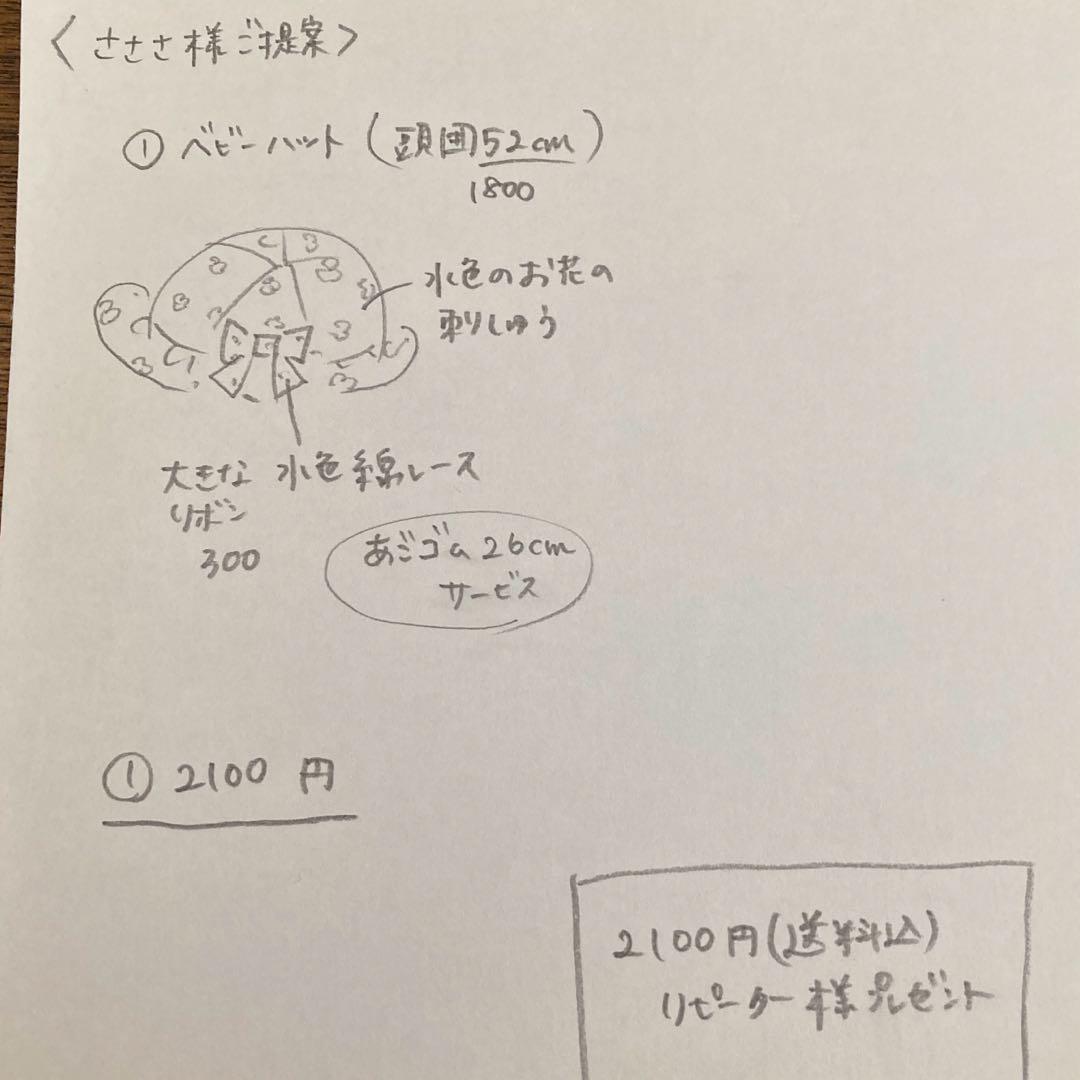 〈さささ様ご提案〉
① ベビーハット (頭囲52cm)
1800
水色のお花の
刺しゅう
大きな 水色綿レース
リボン
300
あごゴム26cm
サービス
① 2100 円
2100円(送料込)
リピーター様プレゼント